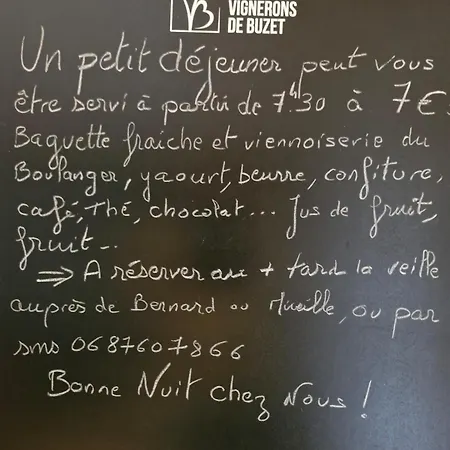 VIGNERONS
DE BUZET
Un petit déjeuner peut vous
être servi à partir de 7h30 à 7€.
Baguette fraiche et viennoiserie du
Boulanger, yaourt, beurre, confiture,
café, thé, chocolat... Jus de fruit,
fruit...
⇒ A réserver au + tard la veille
auprès de Bernard ou Mireille, ou par
sms 0687607866
Bonne Nuit chez Nous !